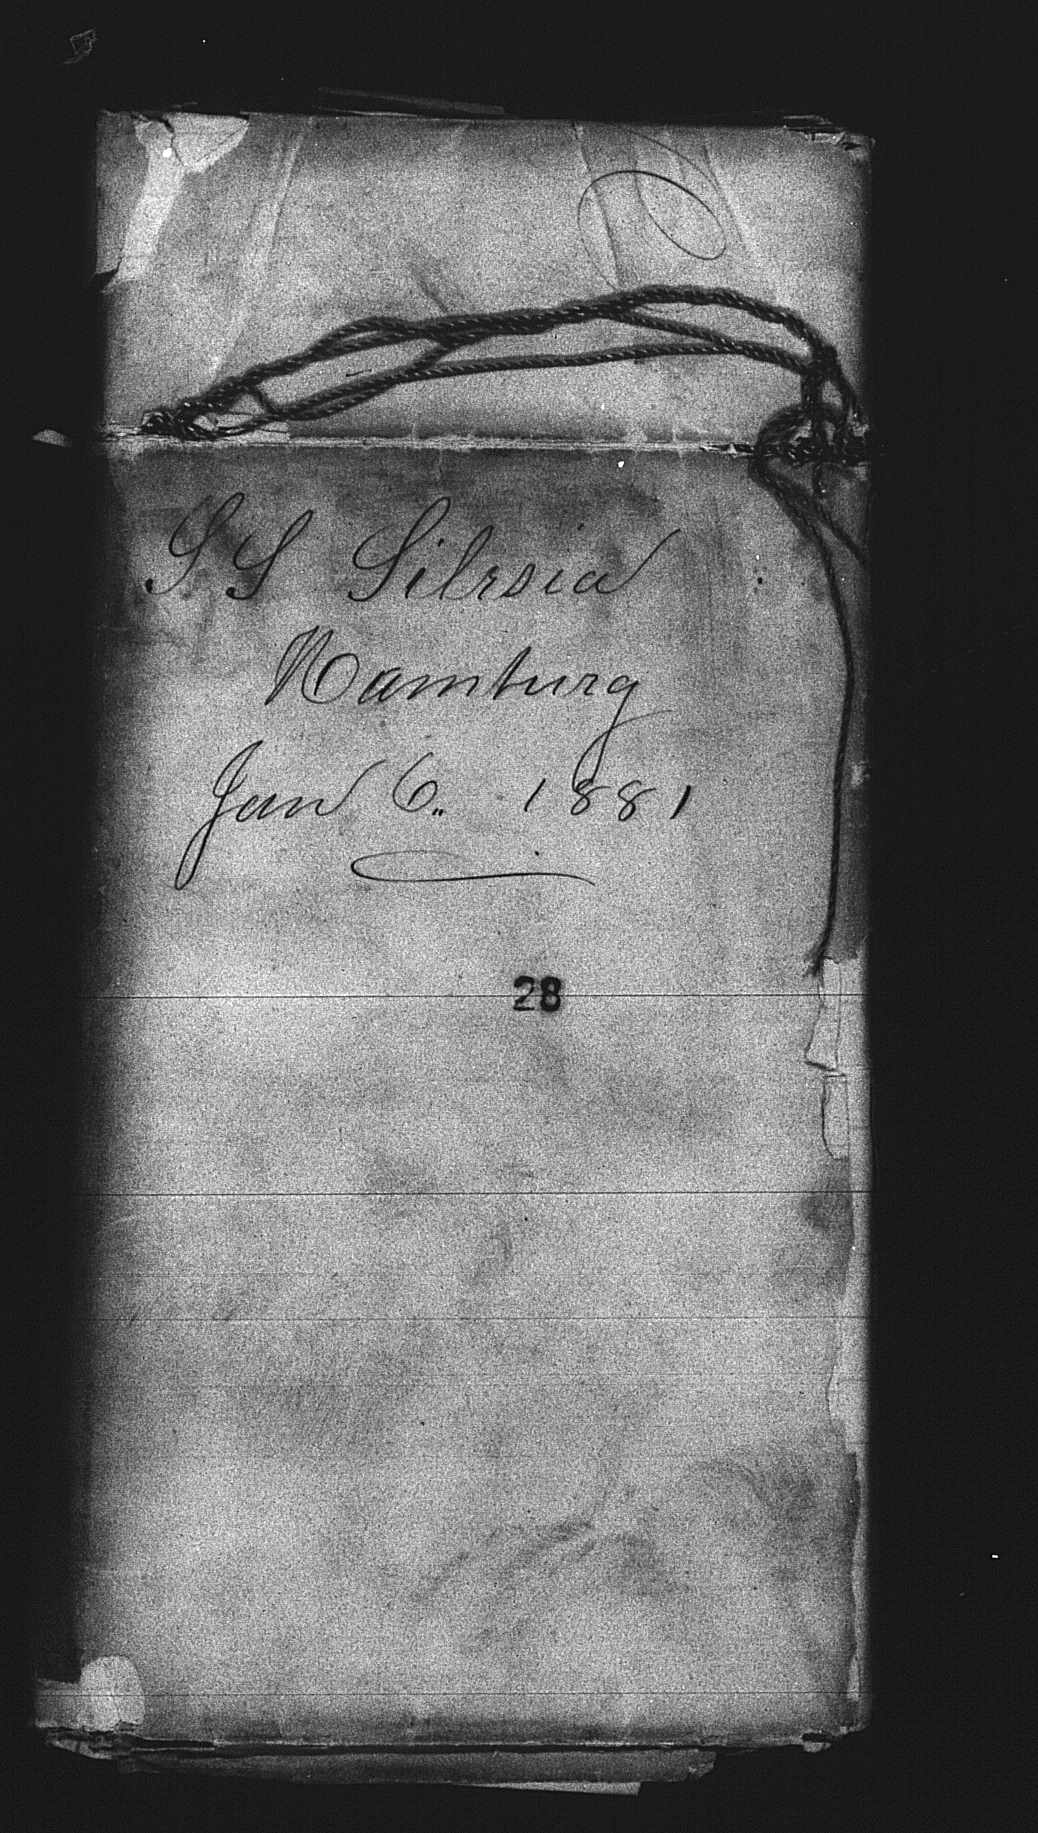 SS Silesia
Hamburg
Jan 6. 1881
28